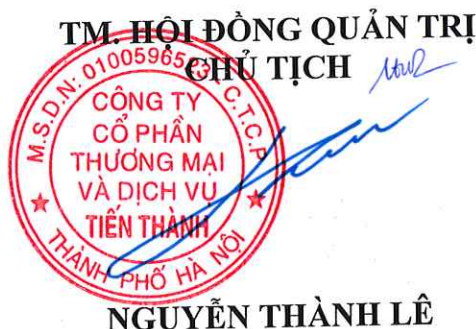 TM. HỘI ĐỒNG QUẢN TRỊ
CHỦ TỊCH
M.S.D.N: 0100596523 - C.T.C.P
CÔNG TY
CỔ PHẦN
THƯƠNG MẠI
VÀ DỊCH VỤ
TIẾN THÀNH
THÀNH PHỐ HÀ NỘI
NGUYỄN THÀNH LÊ